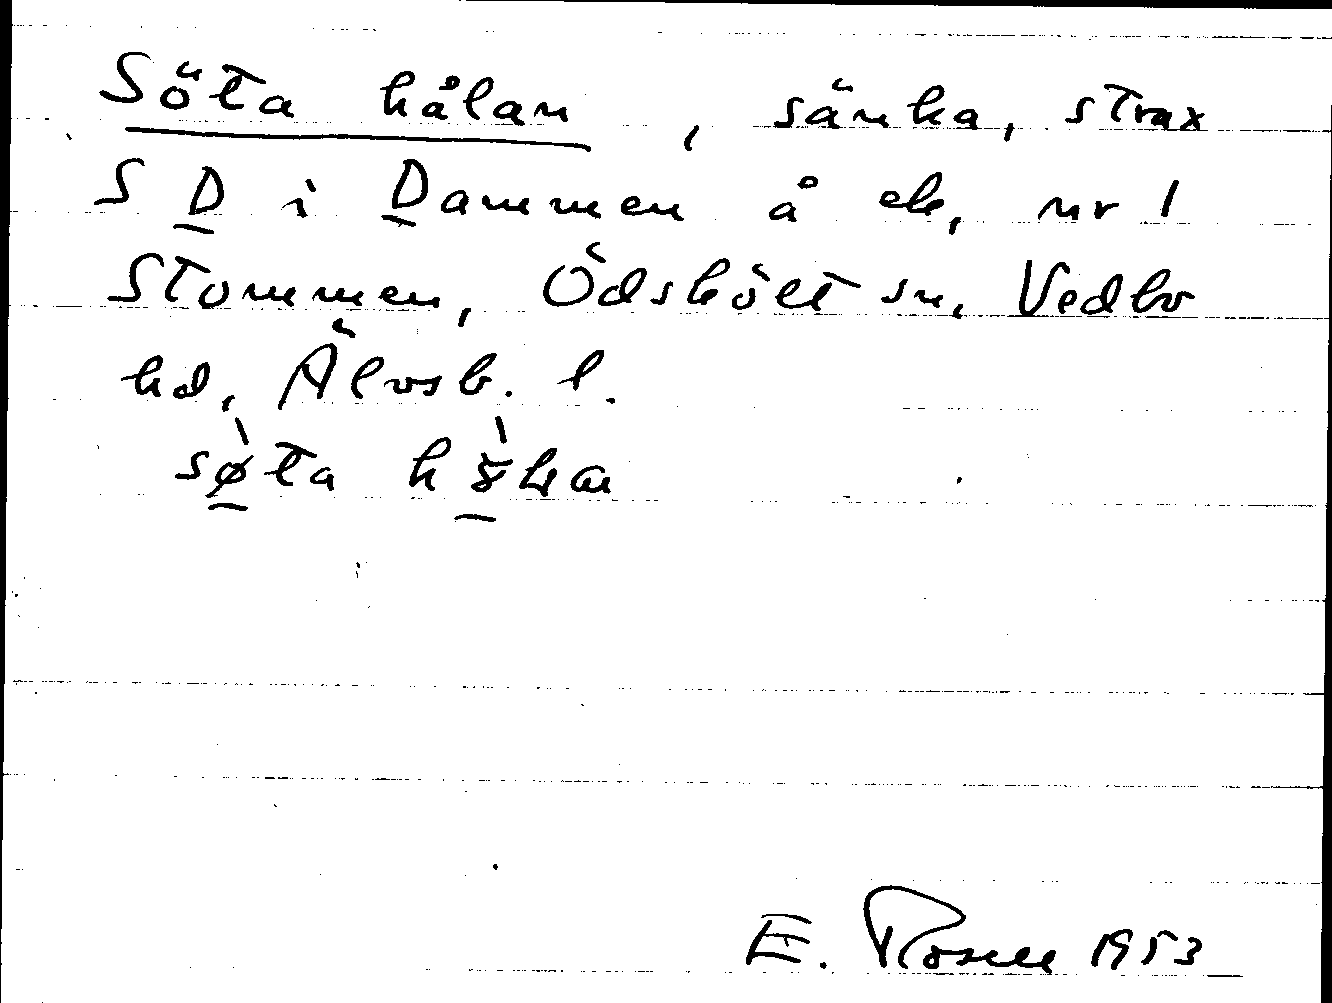 Söta hålan, sänka, strax
S D i Dammen å ek, nr 1
Stommen, Ödskölt sn, Vedbo
hd, Älvsb. l.
søta
E. Rosell 1953